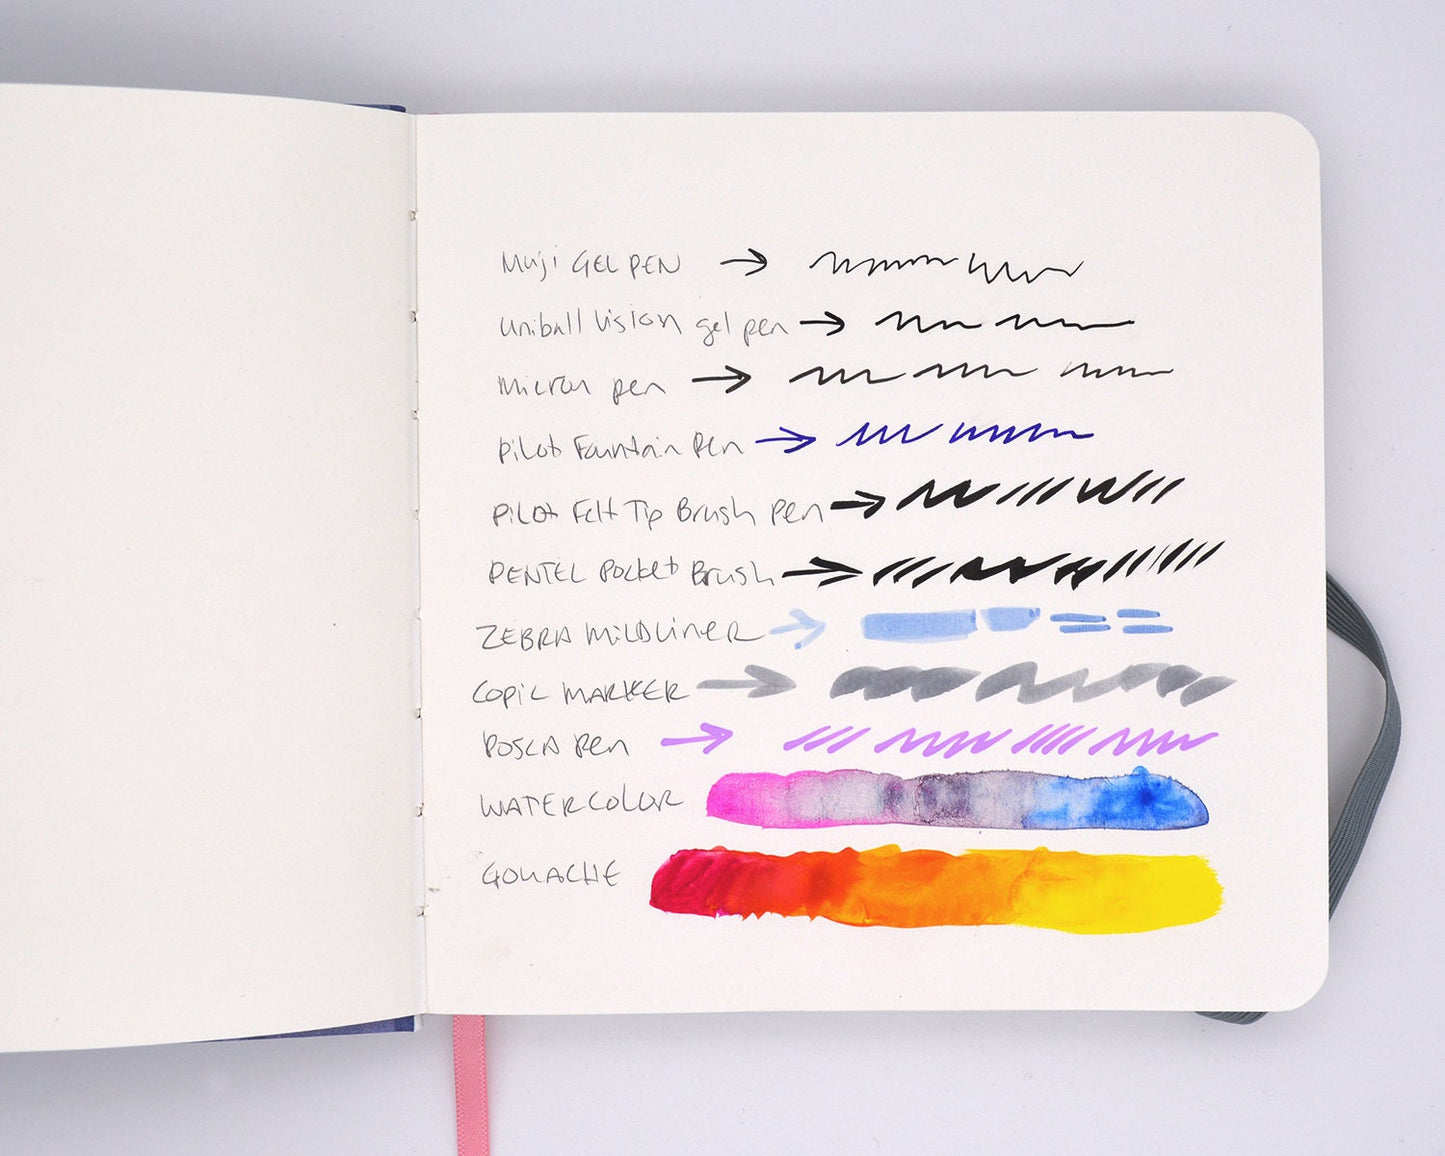 Muji GEL PEN →
Uniball Vision gel pen →
Micron pen →
Pilot Fountain Pen →
Pilot Felt Tip Brush Pen →
PENTEL Pocket Brush →
ZEBRA MILDLINER →
COPIC MARKER →
POSCA Pen →
WATERCOLOR
GOUACHE